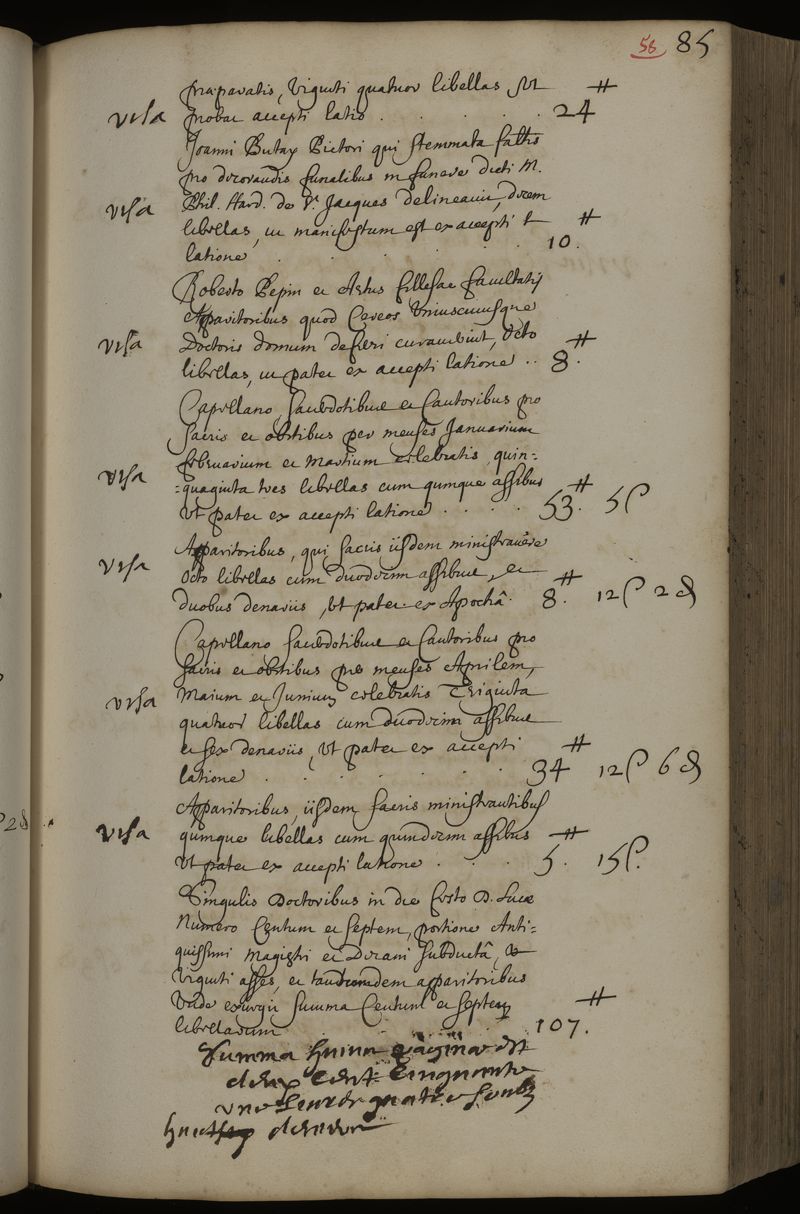 58 85
præparatis, Viginti quatuor libellas Vt ₶
visa probat accepti latio . . . . . 24
Joanni Butay Pictori qui stemmata
pro decorandis funalibus in funere dicti M.
visa Phil. Hard. de St. Jacques delineavit, decem
libellas, ut manifestum est ex accepti ₶
latione . . . . . . 10.
Roberto Pepin et Artus fillesac facultatis
Apparitoribus quod Cereos Vniuscuiusque
visa Doctoris domum deferri curaverint, Octo ₶
libellas, ut patet ex accepti latione .. 8.
Capellano, Sacerdotibus et Cantoribus pro
Sacris et obitibus per menses Januarium
februarium et Martium celebratis, quin=
visa =quaginta tres libellas cum quinque assibus ₶
Vt patet ex accepti latione . . . . 53. 5ſ
Apparitoribus, qui sacris iisdem ministravêre
visa Octo libellas cum duodecim assibus, et ₶
duobus denariis, Vt patet ex Apochâ. 8. 12ſ 2d
Capellano Sacerdotibus et Cantoribus pro
Sacris et obitibus per menses Aprilem,
visa Maium et Junium celebratis Triginta
quatuor libellas cum duodecim assibus
et sex denariis, Vt patet ex accepti ₶
latione . . . . . . . 34 12ſ 6d
Apparitoribus, iisdem sacris ministrantibus
visa quinque libellas cum quindecim assibus ₶
Vt patet ex accepti latione . . . 5. 15ſ.
Singulis Doctoribus in die festo D. Lucæ
Numero Centum et septem, portione Anti=
quissimi Magistri et Decani subductâ,
Viginti asses, et tantumdem apparitoribus
Vnde exurgit summa Centum et septem ₶
libellarum . . . . . 107.
Summa huius paginæ est
deux cent cinquante
une livres quatre soulz
huict deniers